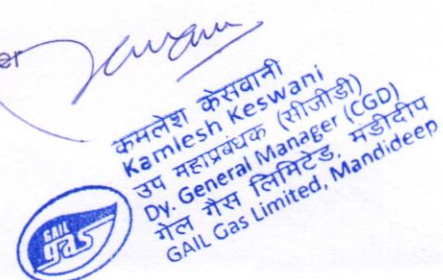 er
कमलेश केसवानी
Kamlesh Keswani
उप महाप्रबंधक (सीजीडी)
Dy. General Manager (CGD)
गेल गैस लिमिटेड, मंडीदीप
GAIL Gas Limited, Mandideep
GAIL
gas